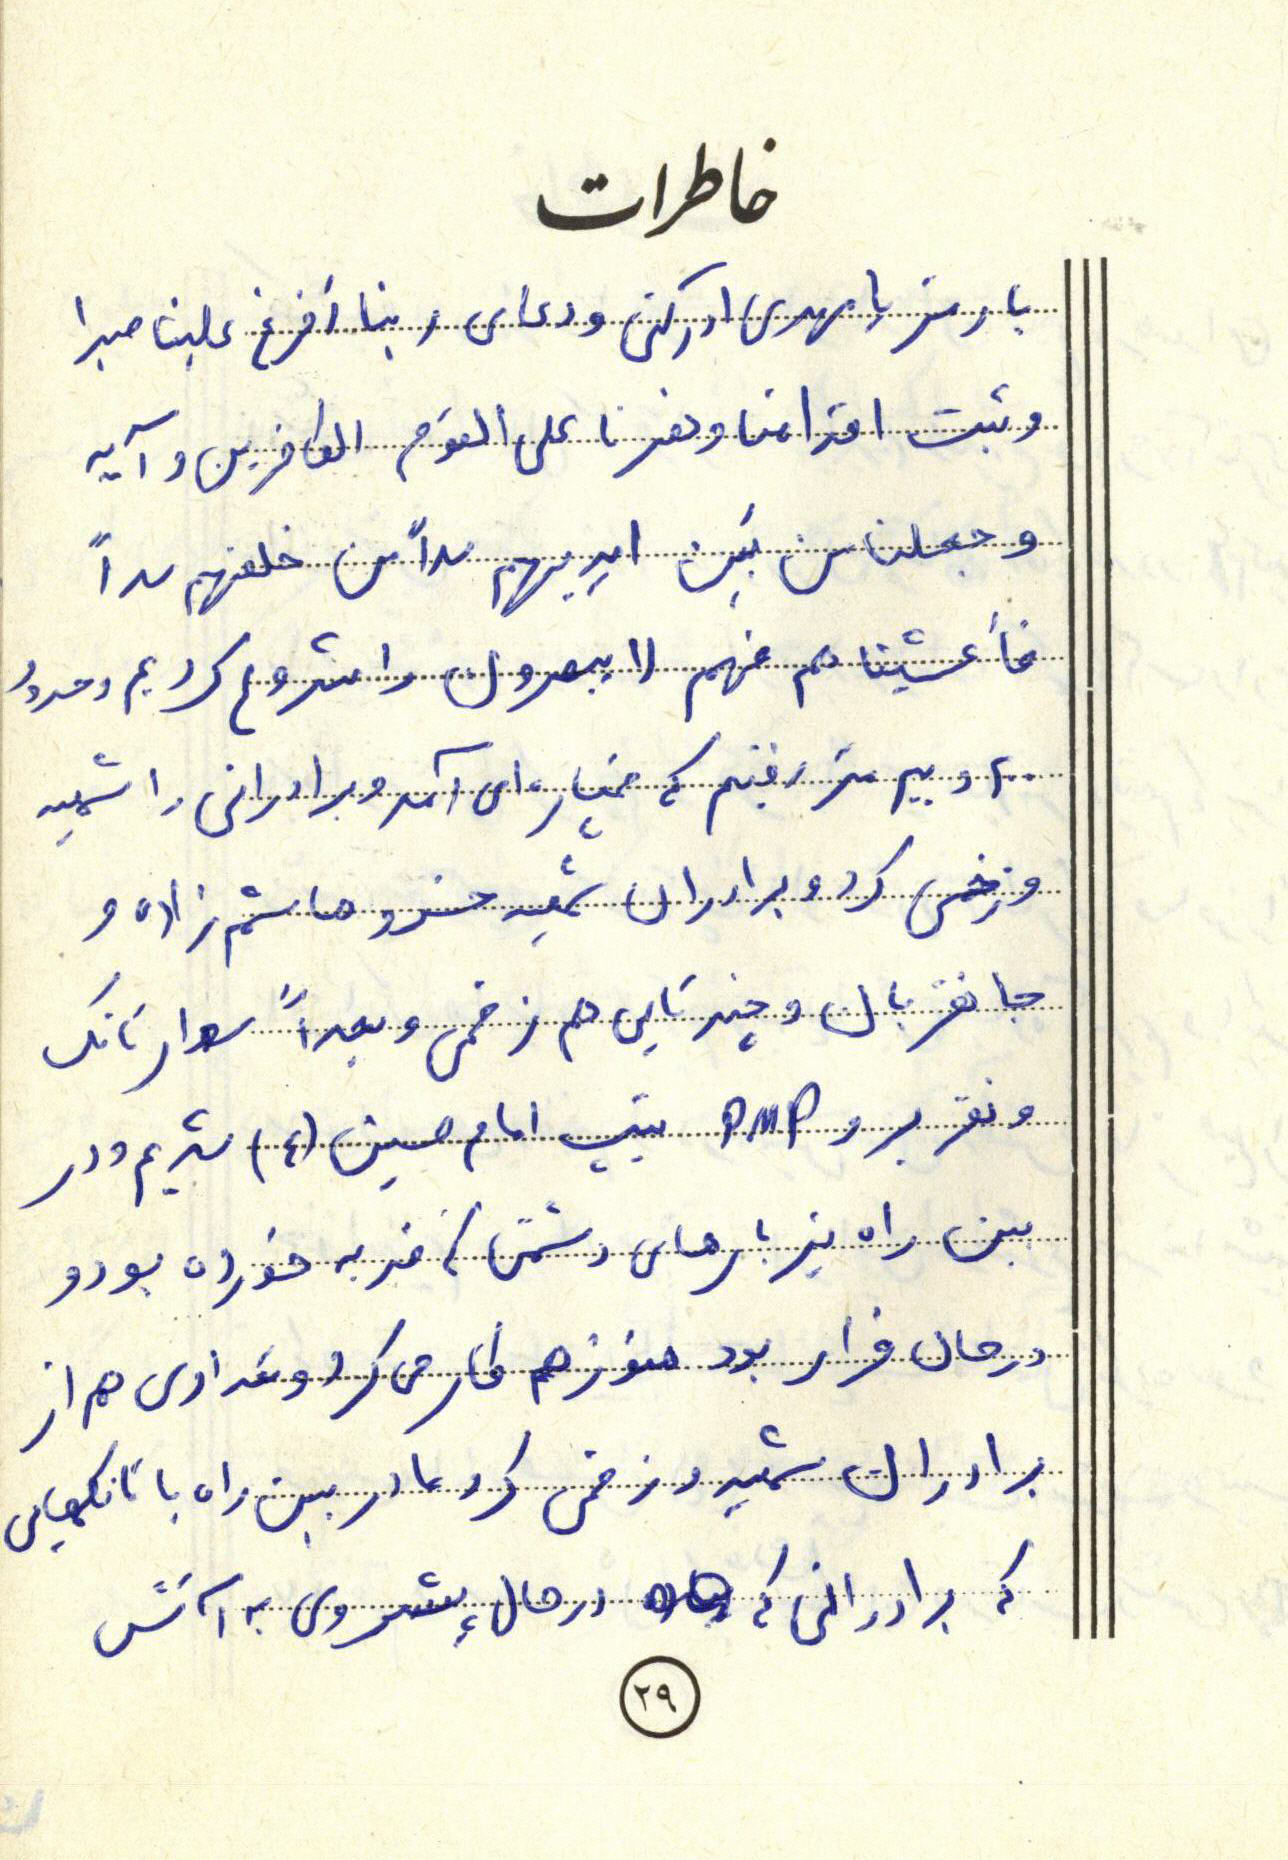 خاطرات
با رمز یا مهدی ادرکنی و دعای ربنا أفرغ علینا صبرا
و ثبت اقدامنا و نصرنا علی القوم الکافرین و آیه
و جعلنا من بَین ایدیهم سداً من خلفهم سداً
فأغشیناهم فهم لا یبصرون را شروع کردیم و حدود
۲۰۰ و بیم متر رفتیم که خمپاره‌ای آمد و برادرانی را شهید
و زخمی کرد و برادران شهید خسرو هاشم زاده و
جانقربان و چند تایی هم زخمی و بعداً سوار تانک
و نفربر و PMP تیپ امام حسین (ع) شدیم و در
بین راه نیز تیربارهای دشمن که ضربه خورده بود و
در حال فرار بود هنوز هم کار می کرد و تعدادی هم از
برادران شهید و زخمی کرد ما در بین راه با تانکهایی
که برادرانی که در حال پیشروی به آتش
۲۹